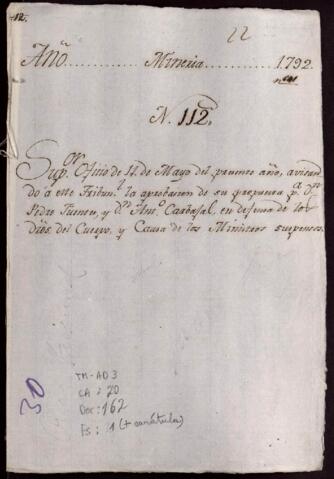 12.
22
Año........ Mineria........ 1792.
N. 112.
Supor. Oficio de 11. de Mayo del presente año, avisan
do a este Tribunl. la aprobacion de su propuesta pa. qe. Dn.
Pedro Fuentes, y Dn. Anto. Carbajal, en defensa de los
dros. del Cuerpo, y Causa de los Ministros suspensos.
30
TM-AD3
CA: 20
Doc: 162
Fs: 1 (+ carátula)